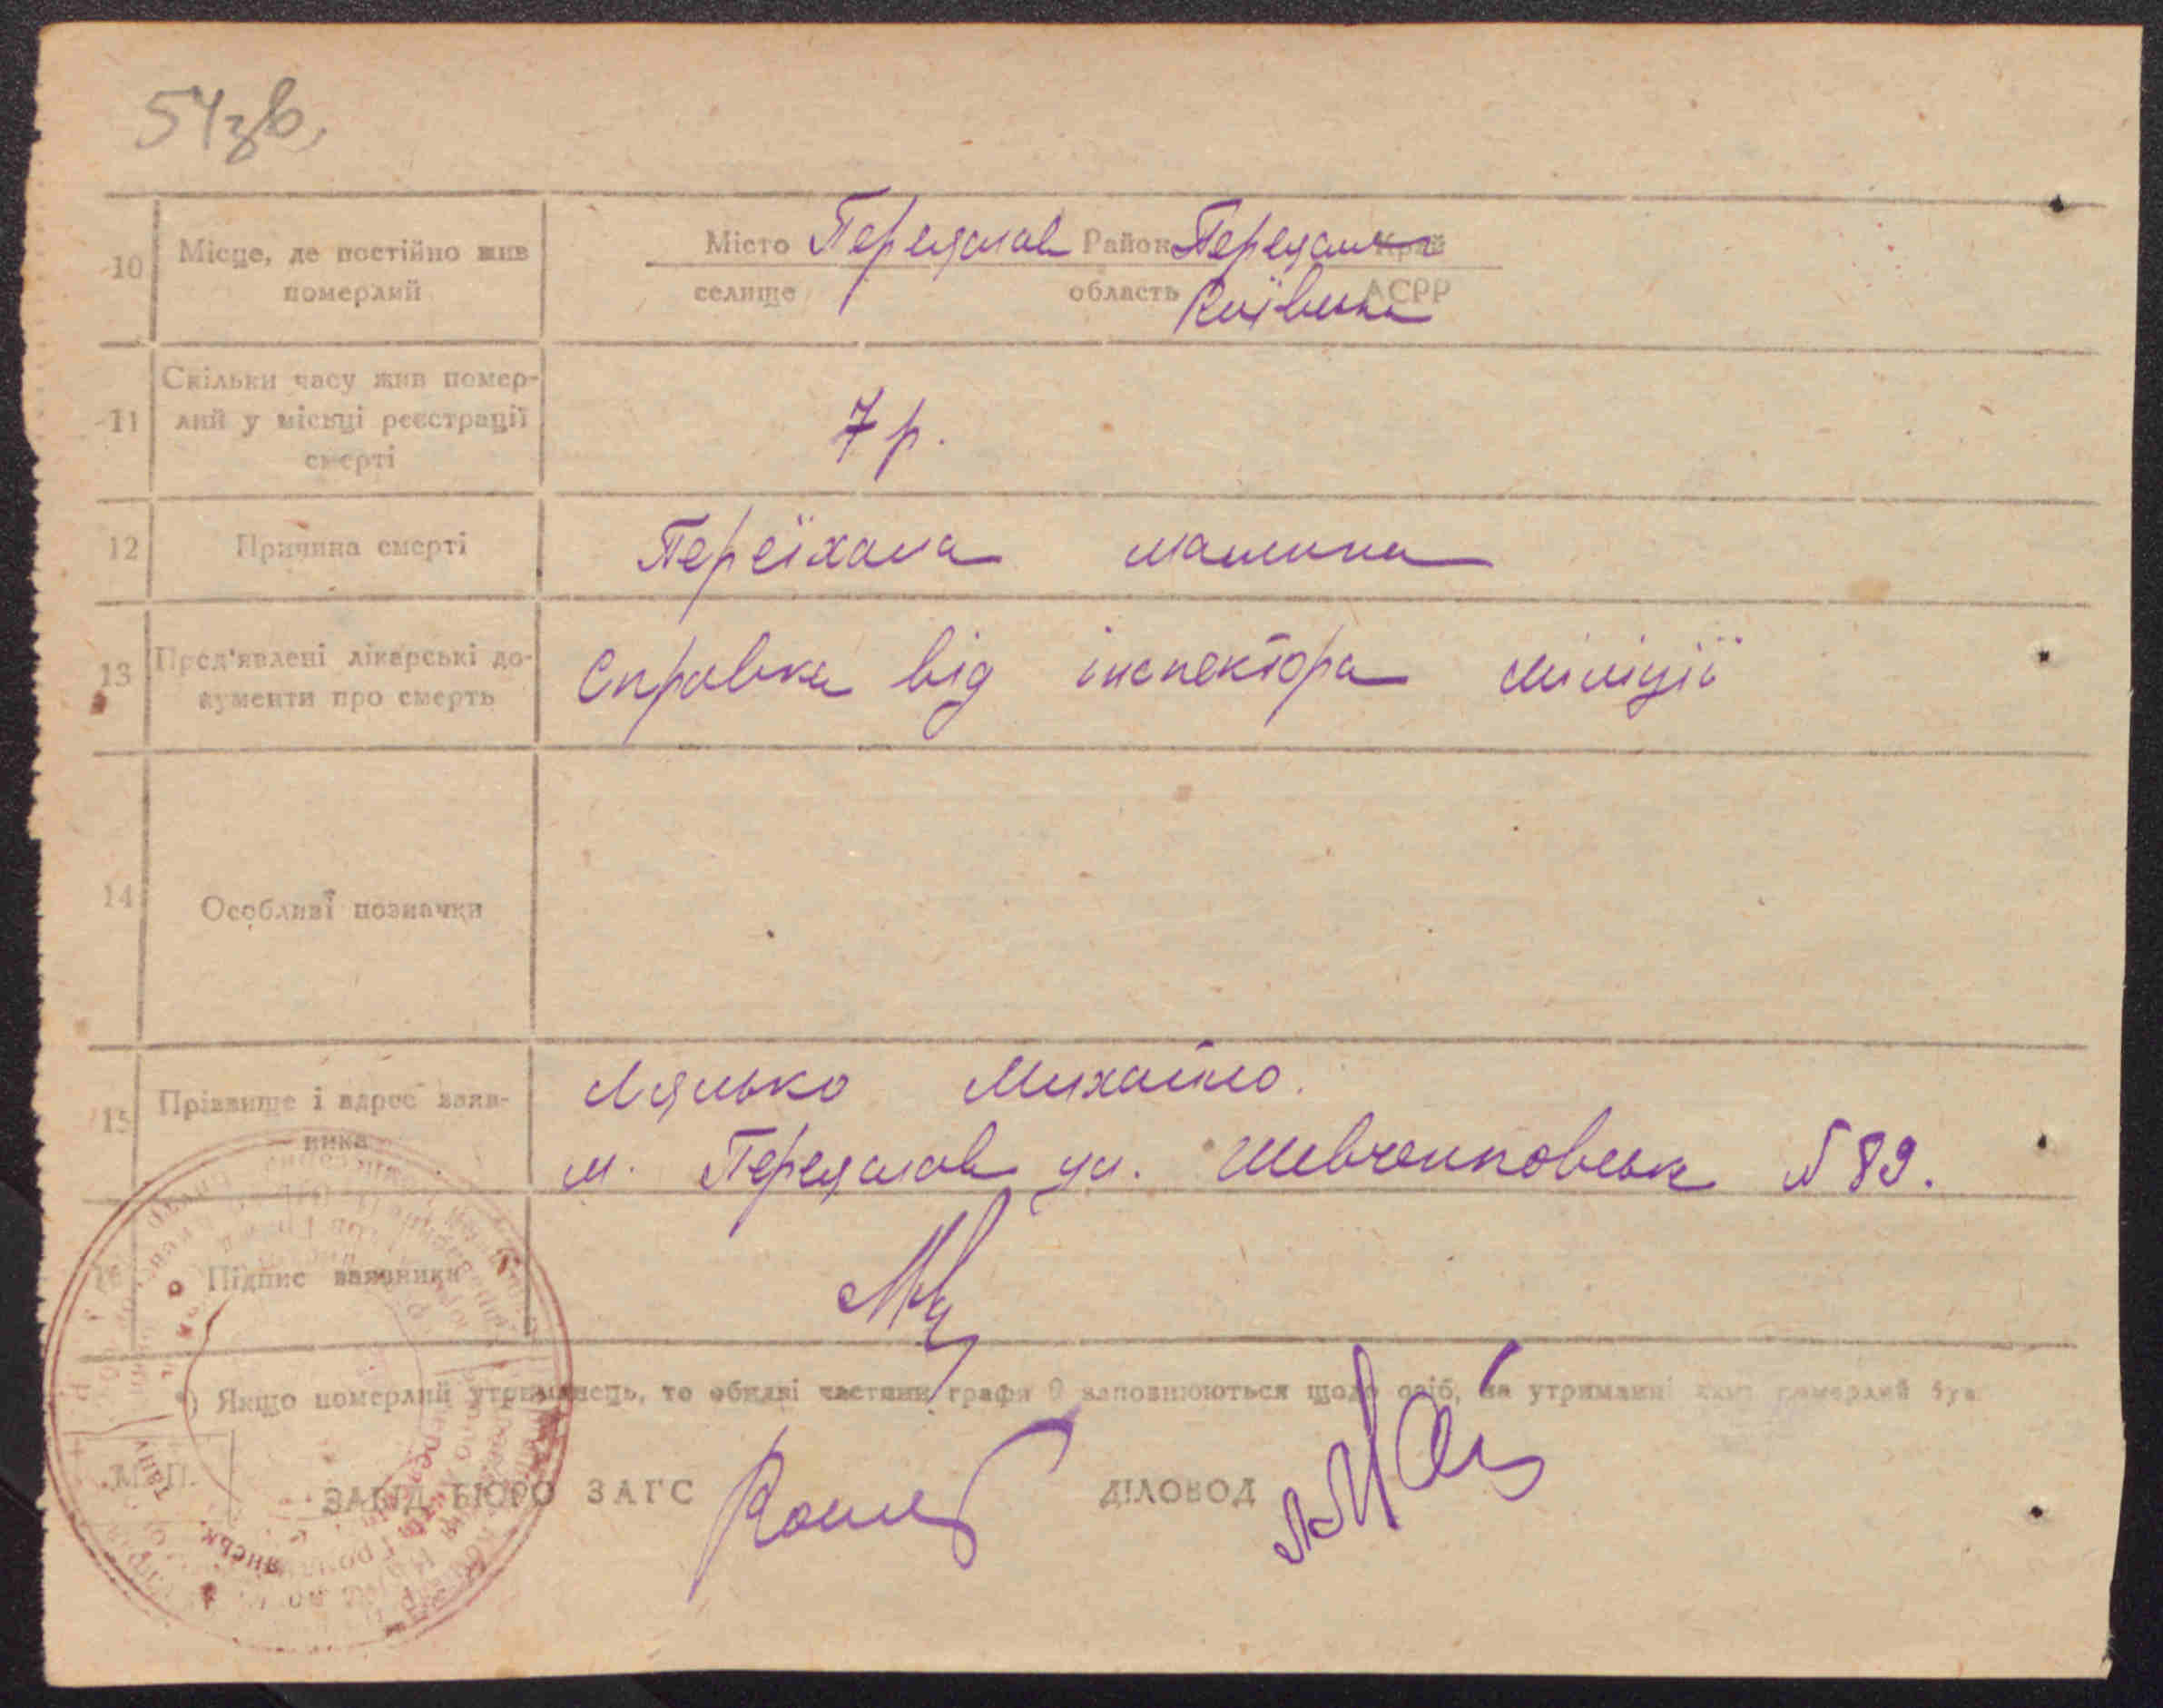 54зв.
10 Місце, де постійно жив померлий
Місто Переяслав Район Переяслав Край
селище область Київська АСРР
11 Скільки часу жив помер-
лий у місці реєстрації
смерті
7 р.
12 Причина смерті
Переїхала машина
13 Пред'явлені лікарські до-
кументи про смерть
Справка від інспектора міліції
14 Особливі позначки
15 Прізвище і адрес заяв-
ника
Лялько Михайло.
м. Переяслав ул. Шевченковськ № 89.
16 Підпис заявника
*) Якщо померлий утриманець, то обидві частини графи 9 заповнюються щодо осіб, на утриманні яких померлий був
М. П.
ЗАВІД. БЮРО ЗАГС
ДІЛОВОД